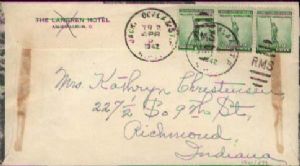 THE LANGREN HOTEL
ASHEVILLE, N. C.
APR
1942
RMS
Mrs Kathryn Christensen
227½ So 9th St,
Richmond
Indiana